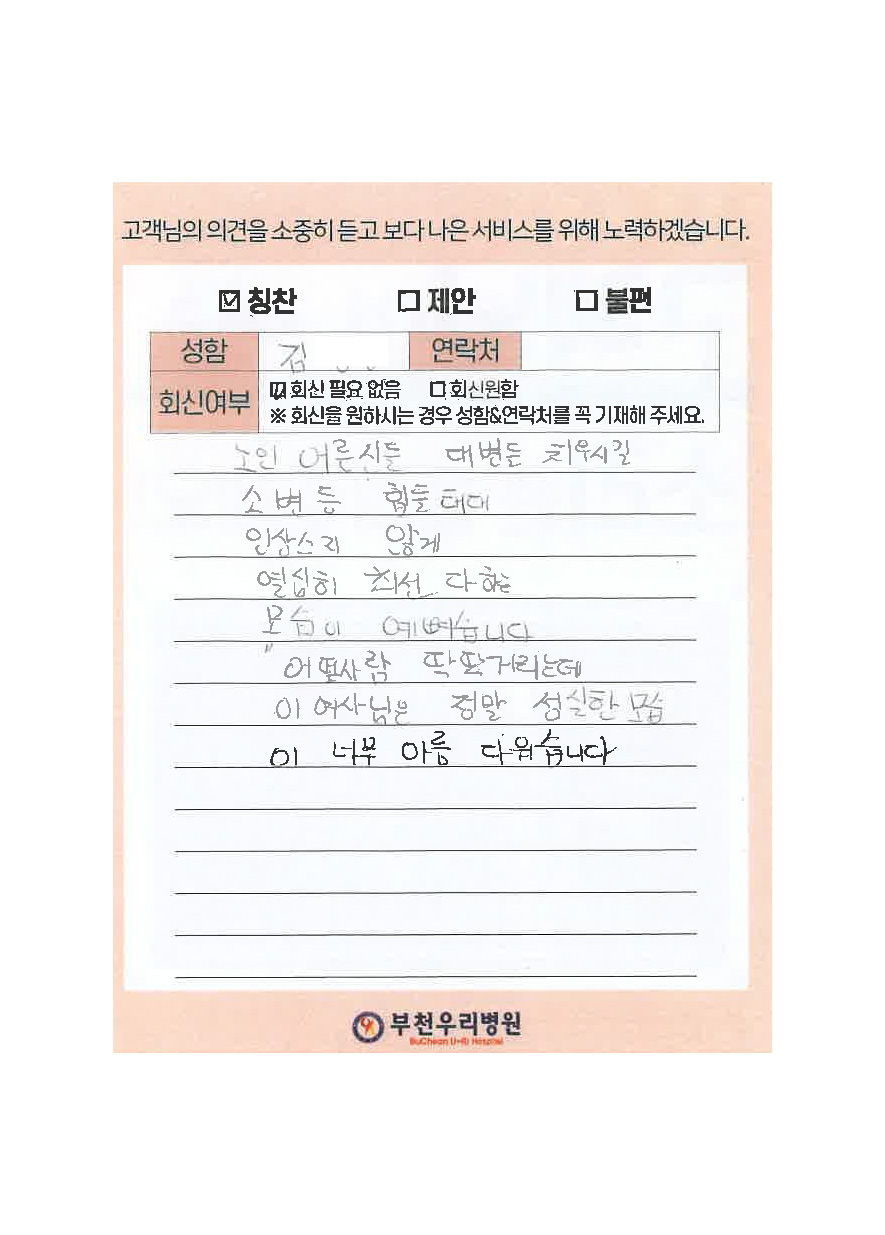 고객님의 의견을 소중히 듣고 보다 나은 서비스를 위해 노력하겠습니다.
☑ 칭찬 ☐ 제안 ☐ 불편
성함 김 연락처
회신여부 ☑ 회신 필요 없음 ☐ 회신원함
※ 회신을 원하시는 경우 성함&연락처를 꼭 기재해 주세요.
노인 어른신들 대변든 치우시길
소변등 힘들태데
인상스지 않게
열심히 최선 다하는
모습이 예뻐습니다
"어떤사람 딱딱거리는데
이 여사님은 정말 성실한 모습
이 너무 아름 다워습니다
부천우리병원
BuCheon U-Ri Hospital